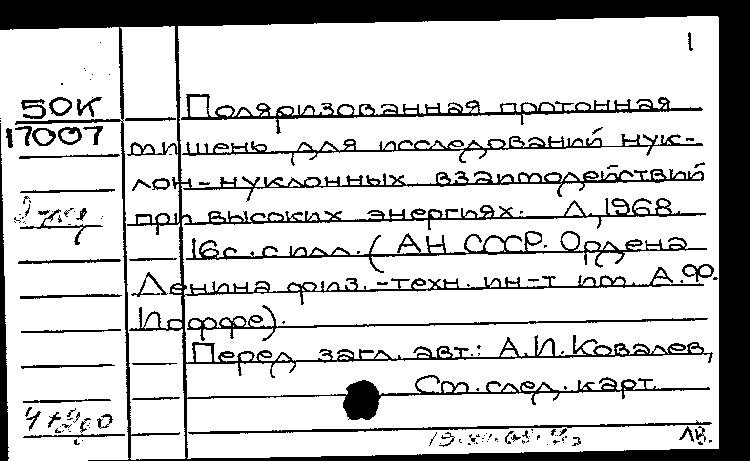 1
50К
17007
Поляризованная протонная
мишень для исследований нук-
лон-нуклонных взаимодействий
при высоких энергиях. Л., 1968.
16с. с илл. (АН СССР. Ордена
Ленина физ.-техн. ин-т им. А.Ф.
Иоффе).
Перед загл. авт.: А.И. Ковалев,
См. след. карт.
ЛВ.